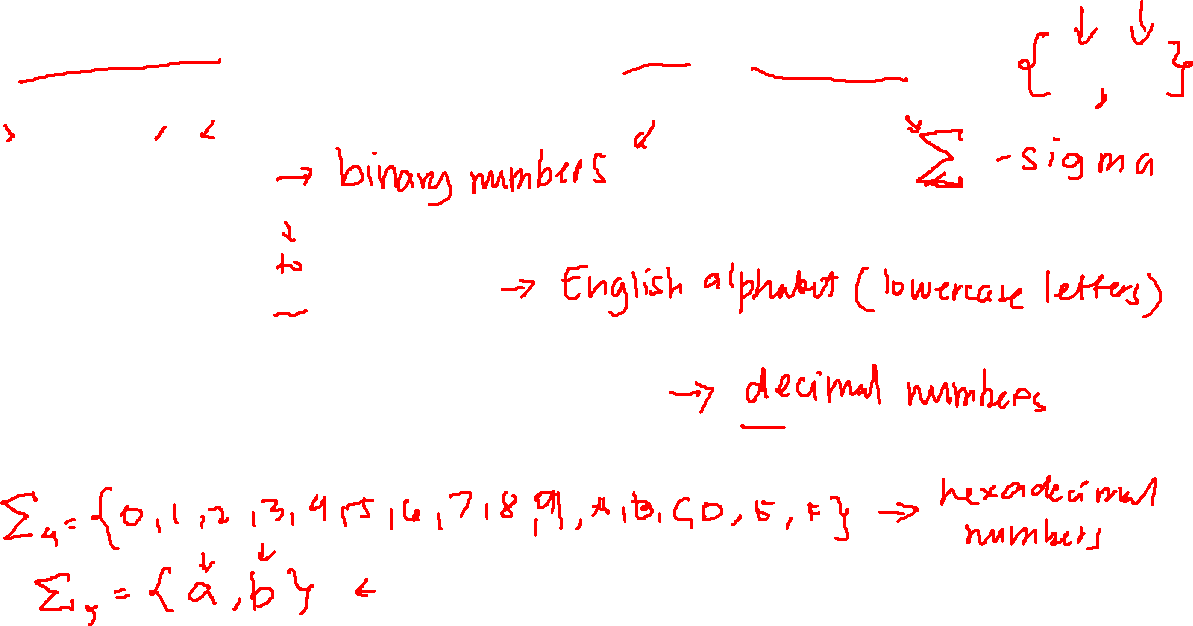 { , }
Σ - sigma
→ binary numbers
to
→ English alphabet (lowercase letters)
→ decimal numbers
Σ₄ = {0,1,2,3,4,5,6,7,8,9,A,B,C,D,E,F} → hexadecimal numbers
Σ₅ = {a,b} ←